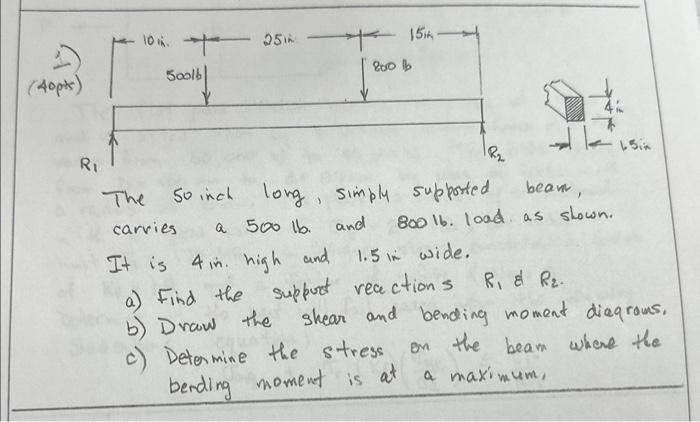 10 in. 25 in 15 in
1)
(40pts)
500lb 800 lb
4 in
1.5 in
R1 R2
The 50 inch long, simply supported beam,
carries a 500 lb. and 800 lb. load. as shown.
It is 4 in. high and 1.5 in wide.
a) Find the support reactions R1 & R2.
b) Draw the shear and bending moment diagrams.
c) Determine the stress on the beam where the
bending moment is at a maximum.